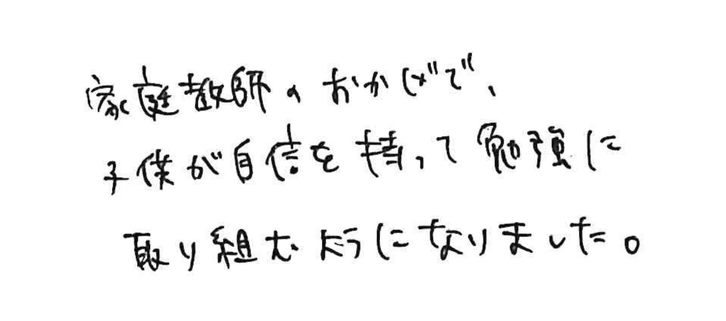 家庭教師のおかげで、
子僕が自信を持って勉強に
取り組むようになりました。